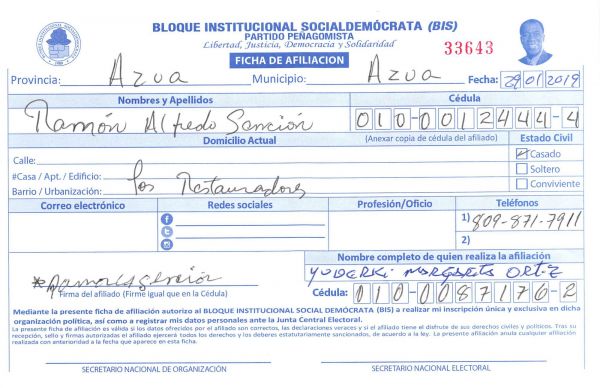 BLOQUE INSTITUCIONAL SOCIALDEMÓCRATA (BIS)
PARTIDO PEÑAGOMISTA
Libertad, Justicia, Democracia y Solidaridad
33643
FICHA DE AFILIACION
Provincia: Azua Municipio: Azua Fecha: 29/01/2019
Nombres y Apellidos Cédula
Ramón Alfredo Sención 010-0012444-4
Domicilio Actual (Anexar copia de cédula del afiliado) Estado Civil
Calle: Casado
#Casa / Apt. / Edificio: Soltero
Barrio / Urbanización: Los Restauradores Conviviente
Correo electrónico Redes sociales Profesión/Oficio Teléfonos
1) 809-871-7911
2)
Nombre completo de quien realiza la afiliación
YUDERKI MARGARITA ORTIZ
Firma del afiliado (Firme igual que en la Cédula) Cédula: 010-0087176-2
Mediante la presente ficha de afiliación autorizo al BLOQUE INSTITUCIONAL SOCIAL DEMÓCRATA (BIS) a realizar mi inscripción única y exclusiva en dicha
organización política, así como a registrar mis datos personales ante la Junta Central Electoral.
La presente ficha de afiliación es válida si los datos ofrecidos por el afiliado son correctos, las declaraciones veraces y si el afiliado tiene el disfrute de sus derechos civiles y políticos. Tras su
recepción, sello y firmas autorizadas el afiliado ejercerá todos los derechos y los deberes estatutariamente sancionados, de acuerdo a la ley. La presente afiliación anula cualquier afiliación
realizada con anterioridad a la fecha que aparece en esta ficha.
SECRETARIO NACIONAL DE ORGANIZACIÓN SECRETARIO NACIONAL ELECTORAL